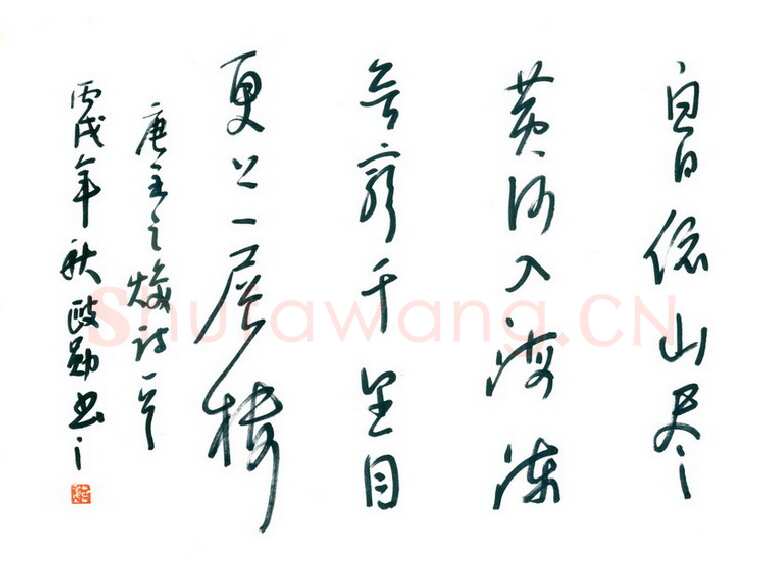 白日依山尽
黄河入海流
欲穷千里目
更上一层楼
唐王之焕诗一首
丙戌年秋勋书
Shufawang.CN